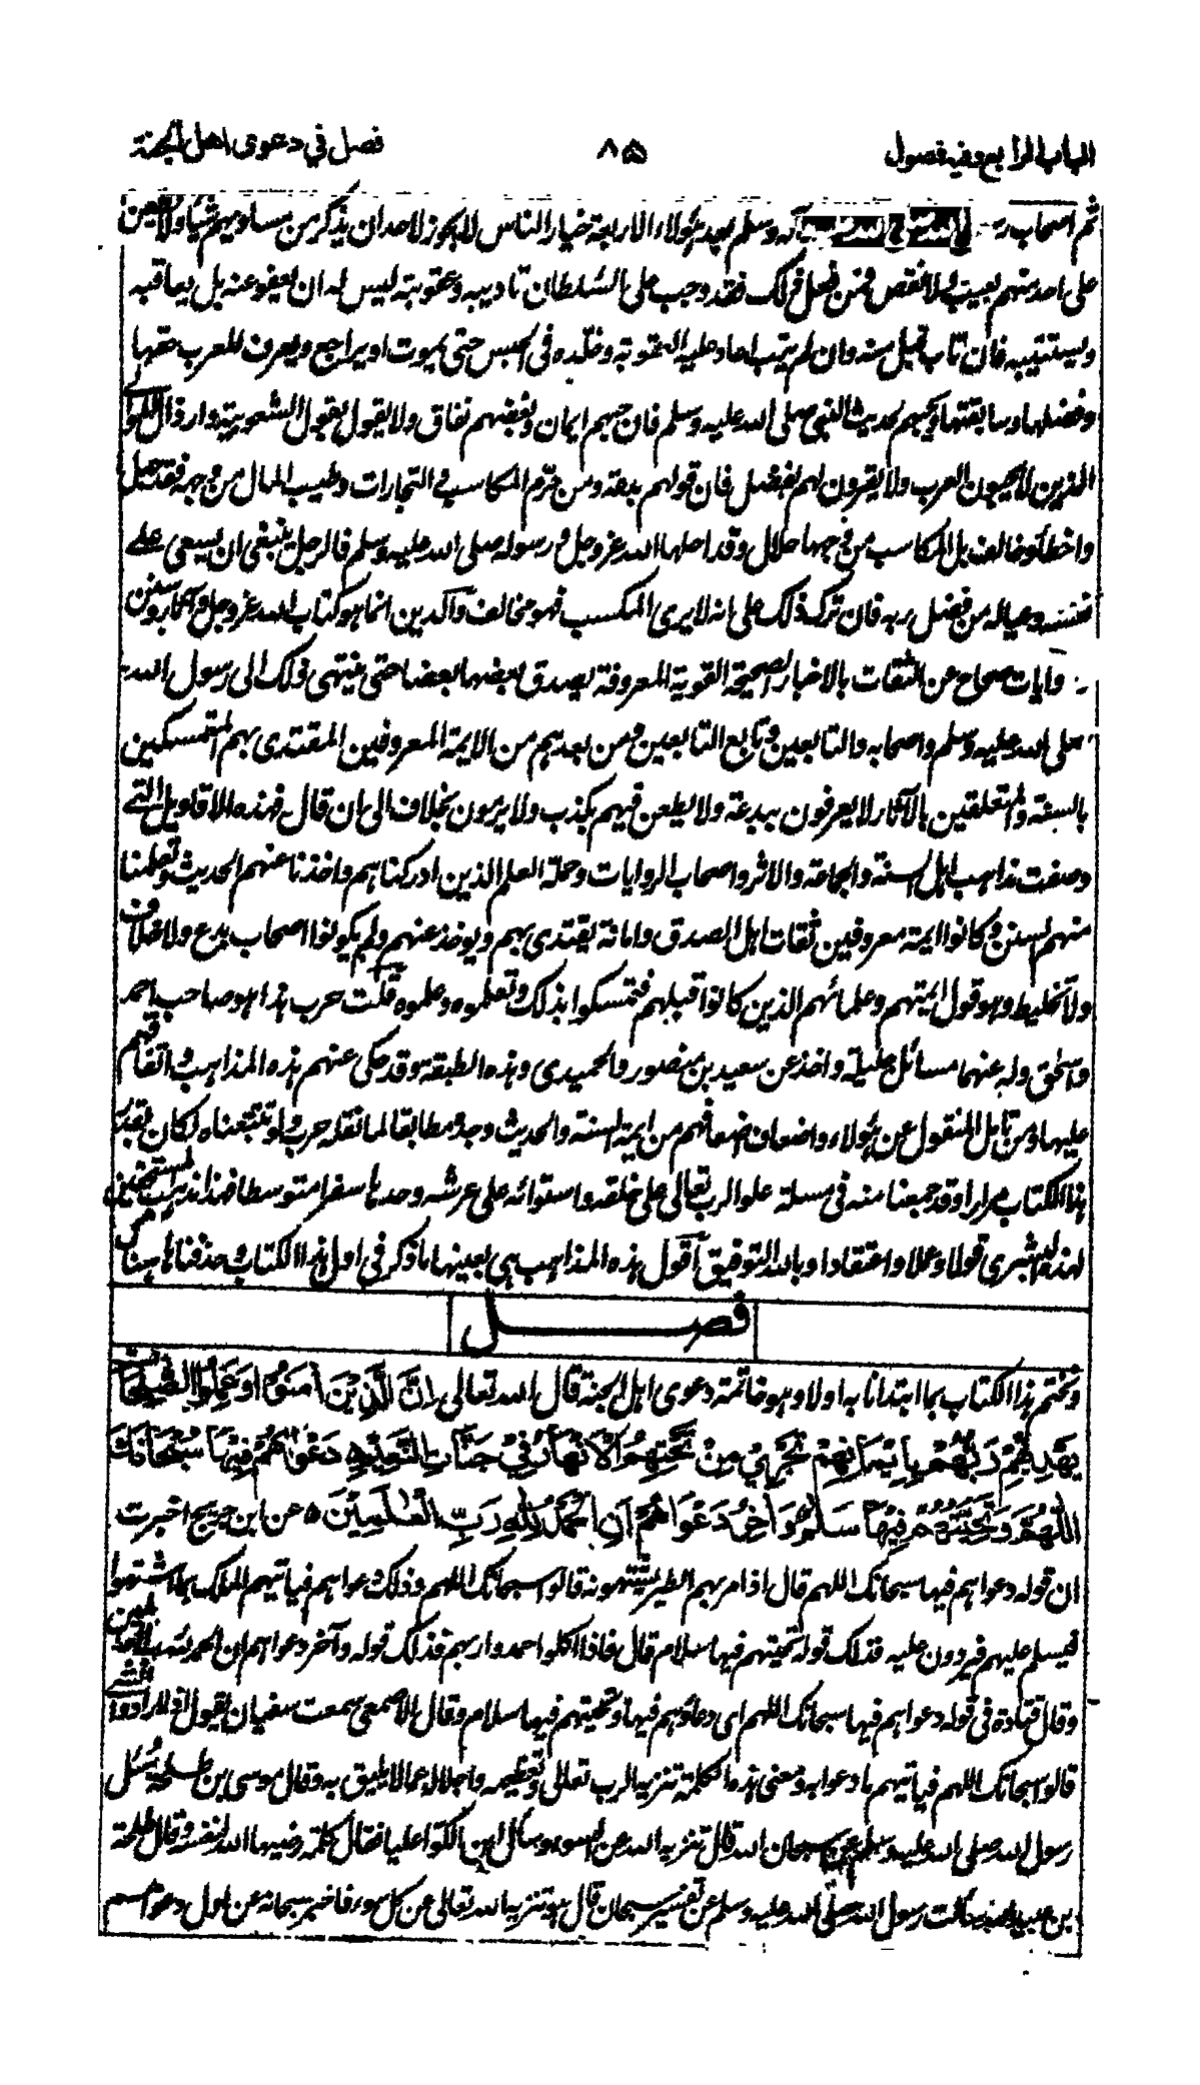 الباب الرابع وفيه فصول ٨٥ فصل في دعوى اهل الجنة
ثم اصحاب رسول الله صلى الله عليه وآله وسلم بعد هؤلاء الاربعة خيار الناس لا يجوز لاحد ان يذكر من مساويهم شيأ ولا يطعن
على احد منهم بعيب ولا نقص فمن فعل ذلك فقد وجب على السلطان تاديبه وعقوبته ليس له ان يعفو عنه بل يعاقبه
ويستتيبه فان تاب قبل منه وان لم يتب اعاد عليه العقوبة وخلده فى الحبس حتى يموت او يراجع ويعرف للعرب حقها
وفضلها وسابقتها ويحبهم لحديث النبي صلى الله عليه وسلم فان حبهم ايمان وبغضهم نفاق ولا يقول بقول الشعوبية واراذل الموالى
الذين لا يحبون العرب ولا يقرون لهم بفضل فان قولهم بدعة ومن حرم المكاسب والتجارات وطيب المال من وجهه فقد جهل
واخطأ وخالف بل المكاسب من وجهها حلال وقد احلها الله عز وجل ورسوله صلى الله عليه وسلم فالرجل ينبغى ان يسعى على
نفسه وعياله من فضل ربه فان ترك ذلك على انه لا يرى المكسب فهو مخالف والدين انما هو كتاب الله عز وجل وآثار وسنن
وروايات صحاح عن الثقات بالاخبار الصحيحة القوية المعروفة يصدق بعضها بعضا حتى ينتهى ذلك الى رسول الله
صلى الله عليه وسلم واصحابه والتابعين وتابع التابعين ومن بعدهم من الايمة المعروفين المقتدى بهم المتمسكين
بالسنة والمتعلقين بالآثار لا يعرفون ببدعة ولا يطعن فيهم بكذب ولا يرمون بخلاف الى ان قال فهذه الاقاويل التے
وصفت مذاهب اهل السنة والجماعة والاثر واصحاب الروايات وحملة العلم الذين ادركناهم واخذنا عنهم الحديث وتعلمنا
منهم السنن وكانوا ايمة معروفين ثقات اهل الصدق وامانة يقتدى بهم ويوخذ عنهم ولم يكونوا اصحاب بدع ولا خلاف
ولا تخليط وهو قول ايمتهم وعلمائهم الذين كانوا قبلهم فتمسكوا بذلك وتعلموه وعلموه قلت حرب هذا هو صاحب احمد
واسحٰق وله عنهما مسائل جليلة واخذ عن سعيد بن منصور والحميدى وهذه الطبقة وقد حكى عنهم هذه المذاهب واتفاقهم
عليها ومن تامل المنقول عن هؤلاء واضعاف اضعافهم من ايمة السنة والحديث وجده مطابقا لما نقله حرب ولو تتبعناه لكان بقدر
هذا الكتاب مرارا وقد جمعنا منه فى مسئلة علو الرب تعالى على خلقه واستوائه على عرشه وحدها سفرا متوسطا فهذا مذهب المستحقين
لهذه البشرى قولا وعملا واعتقادا وبالله التوفيق اقول هذه المذاهب هى بعينها ما ذكر فى اول هذا الكتاب وحذفناه ههنا
فصل
ونختم هذا الكتاب بما ابتدانا به اولا وهو خاتمة دعوى اهل الجنة قال الله تعالى اِنَّ الَّذِيْنَ اٰمَنُوْا وَعَمِلُوا الصّٰلِحٰتِ
يَهْدِيْهِمْ رَبُّهُمْ بِاِيْمَانِهِمْ تَجْرِيْ مِنْ تَحْتِهِمُ الْاَنْهَارُ فِيْ جَنّٰتِ النَّعِيْمِ دَعْوَاهُمْ فِيْهَا سُبْحَانَكَ
اللّٰهُمَّ وَتَحِيَّتُهُمْ فِيْهَا سَلَامٌ وَاٰخِرُ دَعْوَاهُمْ اَنِ الْحَمْدُ لِلّٰهِ رَبِّ الْعٰلَمِيْنَ ٥ عن ابن جريج اخبرت
ان قوله دعواهم فيها سبحانك اللهم قال اذا مر بهم الطير يشتهونه قالوا سبحانك اللهم وذلك دعواهم فياتيهم الملك بما اشتهوا
فيسلم عليهم فيردون عليه فذلك قوله تحيتهم فيها سلام قال فاذا اكلوا حمدوا ربهم فذلك قوله وآخر دعواهم ان الحمد لله رب العلمين
وقال قتادة فى قوله دعواهم فيها سبحانك اللهم اى دعاؤهم فيها وتحيتهم فيها سلام وقال الاشجعى سمعت سفيان يقول اذا ارادوا الشئ
قالوا سبحانك اللهم فياتيهم ما دعوا به ومعنى هذه الكلمة تنزيه الرب تعالى وتعظيمه واجلاله عما لا يليق به وقال موسى بن طلحة سئل
رسول الله صلى الله عليه وسلم عن سبحان الله قال تنزيه الله عن السوء وسأل ابن الكوا عليا فقال كلمة رضيها الله لنفسه وقال طلحة
بن عبيد الله سألت رسول الله صلى الله عليه وسلم عن تفسير سبحان قال هو تنزيه الله تعالى عن كل سوء فاخبر سبحانه عن اول دعواهم